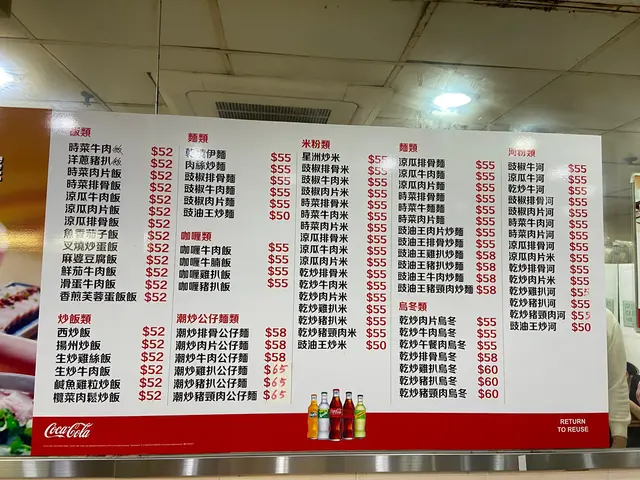 飯類
時菜牛肉飯 $52
洋蔥豬扒飯 $52
時菜肉片飯 $52
時菜排骨飯 $52
涼瓜牛肉飯 $52
涼瓜肉片飯 $52
涼瓜排骨飯 $52
魚香茄子飯 $52
叉燒炒蛋飯 $52
麻婆豆腐飯 $52
鮮茄牛肉飯 $52
滑蛋牛肉飯 $52
香煎芙蓉蛋飯 $52
炒飯類
西炒飯 $52
揚州炒飯 $52
生炒雞絲飯 $52
生炒牛肉飯 $52
鹹魚雞粒炒飯 $52
欖菜肉鬆炒飯 $52
麵類
乾燒伊麵 $55
肉絲炒麵 $55
豉椒排骨麵 $55
豉椒牛肉麵 $55
豉椒肉片麵 $55
豉油王炒麵 $50
咖喱類
咖喱牛肉飯 $55
咖喱牛腩飯 $55
咖喱雞扒飯 $55
咖喱豬扒飯 $55
潮炒公仔麵類
潮炒排骨公仔麵 $58
潮炒肉片公仔麵 $58
潮炒牛肉公仔麵 $58
潮炒雞扒公仔麵 $65
潮炒豬扒公仔麵 $65
潮炒豬頸肉公麵 $65
米粉類
星洲炒米 $55
豉椒排骨米 $55
豉椒牛肉米 $55
豉椒肉片米 $55
時菜排骨米 $55
時菜牛肉米 $55
時菜肉片米 $55
涼瓜排骨米 $55
涼瓜牛肉米 $55
涼瓜肉片米 $55
乾炒排骨米 $55
乾炒牛肉米 $55
乾炒肉片米 $55
乾炒雞扒米 $55
乾炒豬扒米 $55
乾炒豬頸肉米 $55
豉油王炒米 $50
麵類
涼瓜排骨麵 $55
涼瓜牛肉麵 $55
涼瓜肉片麵 $55
時菜排骨麵 $55
時菜牛麵 $55
時菜肉片麵 $55
豉油王肉片炒麵 $55
豉油王排骨炒麵 $55
豉油王雞扒炒麵 $58
豉油王豬扒炒麵 $58
豉油王牛肉炒麵 $58
豉油王豬頸肉炒麵 $58
烏冬類
乾炒肉片烏冬 $55
乾炒牛肉烏冬 $55
乾炒午餐肉烏冬 $55
乾炒排骨烏冬 $58
乾炒雞扒烏冬 $60
乾炒豬扒烏冬 $60
乾炒豬頸肉烏冬 $60
河粉類
豉椒牛河 $55
涼瓜牛河 $55
乾炒牛河 $55
豉椒排骨河 $55
豉椒肉片河 $55
時菜排骨河 $55
時菜肉片河 $55
涼瓜排骨河 $55
涼瓜肉片河 $55
乾炒排骨河 $55
乾炒肉片河 $55
乾炒雞扒河 $55
乾炒豬扒河 $55
乾炒豬頸肉河 $55
豉油王炒河 $50
Coca-Cola
RETURN
TO REUSE